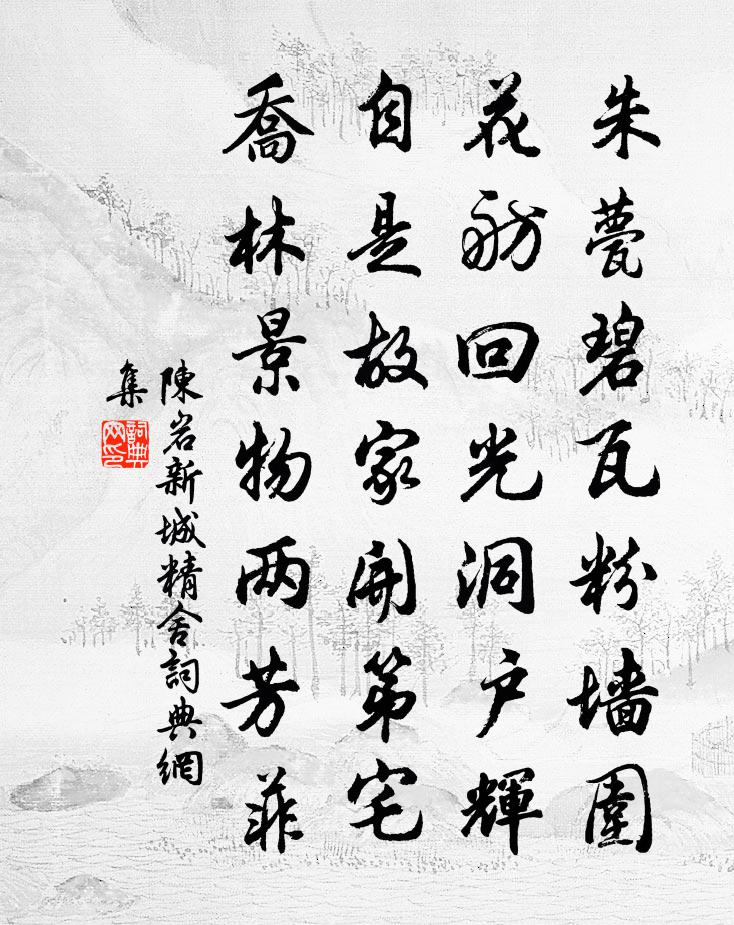 朱甍碧瓦粉墙圍
花舫回光洞户輝
自是故家開第宅
喬林景物两芳菲
陳岩新城精舍詞典網
集
詞典
网印